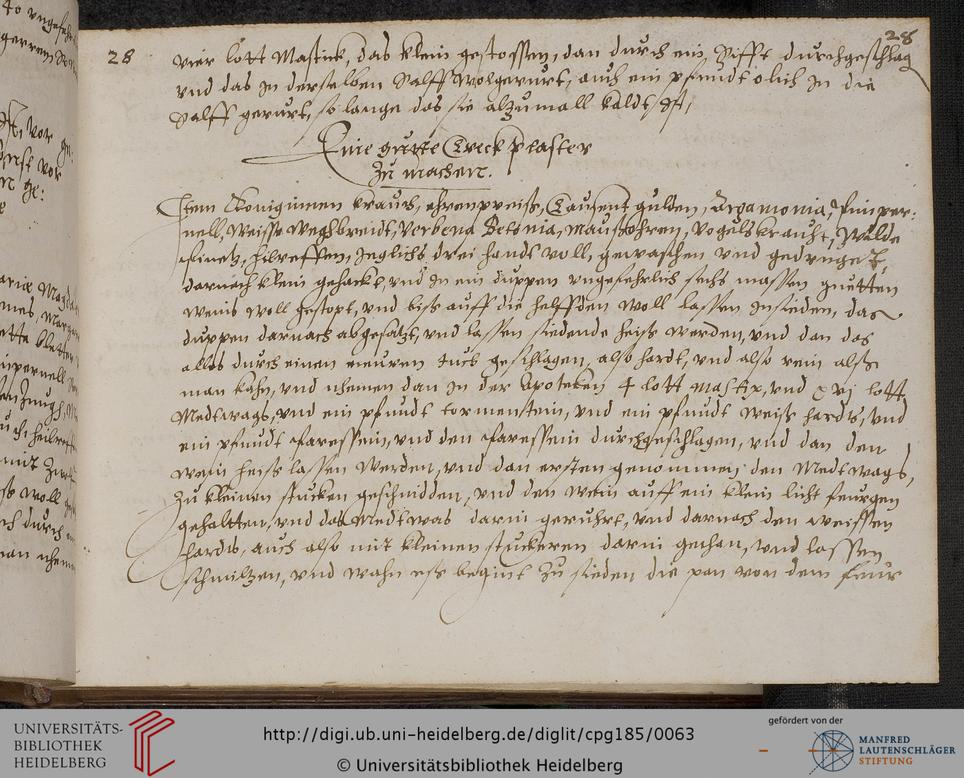 28
28
vier lott Mastick, das klein gestossen, dan durch ein Sifft durchgeschlag
vnd das in derselben Salff wolgerurt, auch ein pfundt olich in die
Salff gerurt, so lange das sie alzumall kaldt ist,
Eine gutte Treck plaster
Zu machen.
Item Konniginnen krauch, ehrenpreiss, Tausent gulden, Argamonia, Pimper:
nell, Weisse Weghbreidt, Verbena Betonia, Maussohren, Vogelskraucht, Wilde
hilreffen, Jeglichs drei handt voll, gewaschen vnd gedruget
darnach klein gehackt, vnd in ein duppen vngefehrlich sechs massen gutten
weins woll gestopt, vnd biss auff die helffden woll lassen Insieden, das
duppen darnach abgesatzt, vnd lassen siedende heiss werden, vnd dan das
alles durch einen neuwen tuch geschlagen, also hardt, vnd also rein alss
man kahn, vnd nhemen dan in der Apoteken 4 lott mastix, vnd xvj lott
Medtwags, vnd ein pfundt tormentein, vnd ein pfundt weiss hardts, vnd
ein pfundt vnd den durchgeschlagen, vnd dan den
wein heiss lassen werden, vnd dan ersten genommen, den Medtwags,
Zu kleinen stucken geschnidden, vnd den wein auff ein klein licht feurgen
gehaltten, vnd das Medtwas darin geruhrt, vnd darnach den weissen
hardts, auch also mit kleinen stuckeren darin gethan, vnd lassen
schmiltzen, vnd wahn ess begint zu sieden die pan von dem feur
UNIVERSITÄTS-
BIBLIOTHEK
HEIDELBERG
http://digi.ub.uni-heidelberg.de/diglit/cpg185/0063
© Universitätsbibliothek Heidelberg
gefördert von der
MANFRED
LAUTENSCHLÄGER
STIFTUNG